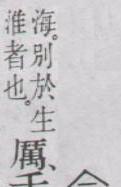 海。別於生
淮者也。
厲、